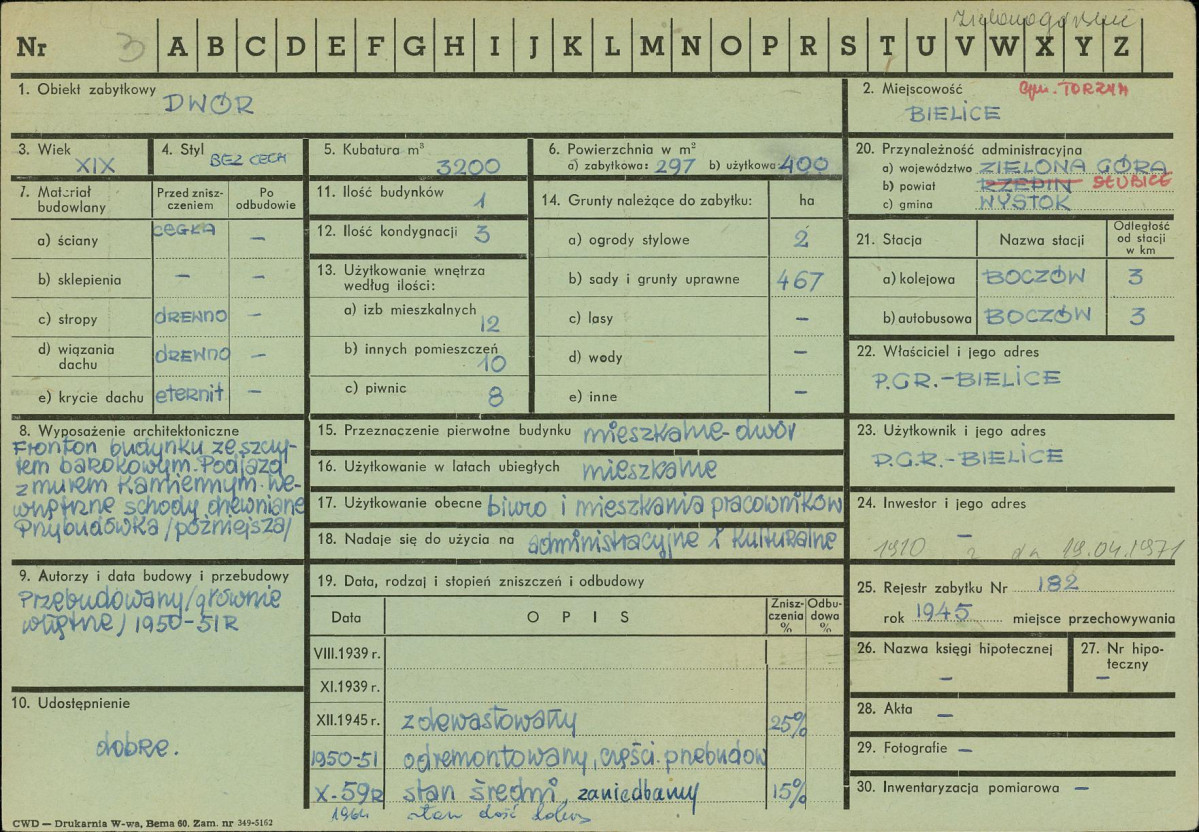 Zielonogórskie
Nr 3 A B C D E F G H I J K L M N O P R S T U V W X Y Z
1. Obiekt zabytkowy
DWÓR
2. Miejscowość gm. TORZYM
BIELICE
3. Wiek
XIX
4. Styl
BEZ CECH
5. Kubatura m³
3200
6. Powierzchnia w m²
a) zabytkowa: 297 b) użytkowa 400
20. Przynależność administracyjna
a) województwo ZIELONA GÓRA
b) powiat RZEPIN SŁUBICE
c) gmina WYSTOK
7. Materiał budowlany
Przed zniszczeniem
Po odbudowie
a) ściany CEGŁA –
b) sklepienia – –
c) stropy DREWNO –
d) wiązania dachu DREWNO –
e) krycie dachu eternit –
11. Ilość budynków 1
12. Ilość kondygnacji 3
13. Użytkowanie wnętrza
według ilości:
a) izb mieszkalnych 12
b) innych pomieszczeń 10
c) piwnic 8
14. Grunty należące do zabytku: ha
a) ogrody stylowe 2
b) sady i grunty uprawne 467
c) lasy –
d) wody –
e) inne –
21. Stacja Nazwa stacji Odległość od stacji w km
a) kolejowa BOCZÓW 3
b) autobusowa BOCZÓW 3
22. Właściciel i jego adres
P.G.R.-BIELICE
8. Wyposażenie architektoniczne
Fronton budynku ze szczy-
tem barokowym. Podjazd
z murem kamiennym. We-
wnętrzne schody drewniane
Przybudówka /późniejsza/
15. Przeznaczenie pierwotne budynku mieszkalne-dwór
16. Użytkowanie w latach ubiegłych mieszkalne
17. Użytkowanie obecne biuro i mieszkania pracowników
18. Nadaje się do użycia na administracyjne i kulturalne
23. Użytkownik i jego adres
P.G.R.-BIELICE
24. Inwestor i jego adres
–
1910 z dn 19.04.1971
9. Autorzy i data budowy i przebudowy
Przebudowany /głównie
wnętrze/ 1950-51R
10. Udostępnienie
dobre.
19. Data, rodzaj i stopień zniszczeń i odbudowy
Data OPIS Zniszczenia % Odbudowa %
VIII.1939 r.
XI.1939 r.
XII.1945 r. zdewastowany 25%
1950-51 odremontowany, części. przebudow
X-59R stan średni, zaniedbany 15%
1964 stan dość dobry
25. Rejestr zabytku Nr 182
rok 1945 miejsce przechowywania
26. Nazwa księgi hipotecznej
–
27. Nr hipoteczny
–
28. Akta –
29. Fotografie –
30. Inwentaryzacja pomiarowa –
CWD — Drukarnia W-wa, Bema 60. Zam. nr 349-5162